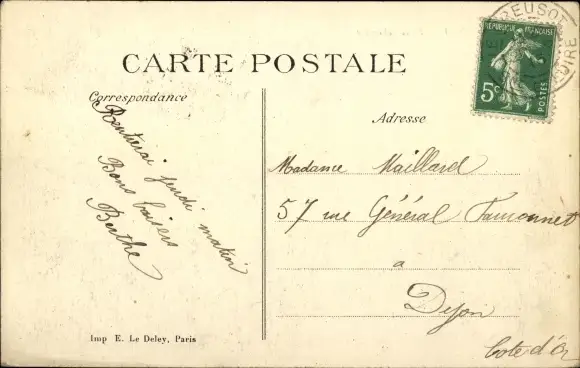 CARTE POSTALE
Correspondance
Rentrerai jeudi matin
Bons baisers
Berthe
Imp E. Le Deley, Paris
REPUBLIQUE FRANÇAISE
5c
POSTES
CREUSOT
LOIRE
Adresse
Madame Maillard
57 rue Général Fauconnet
a
Dijon
Cote d'Or